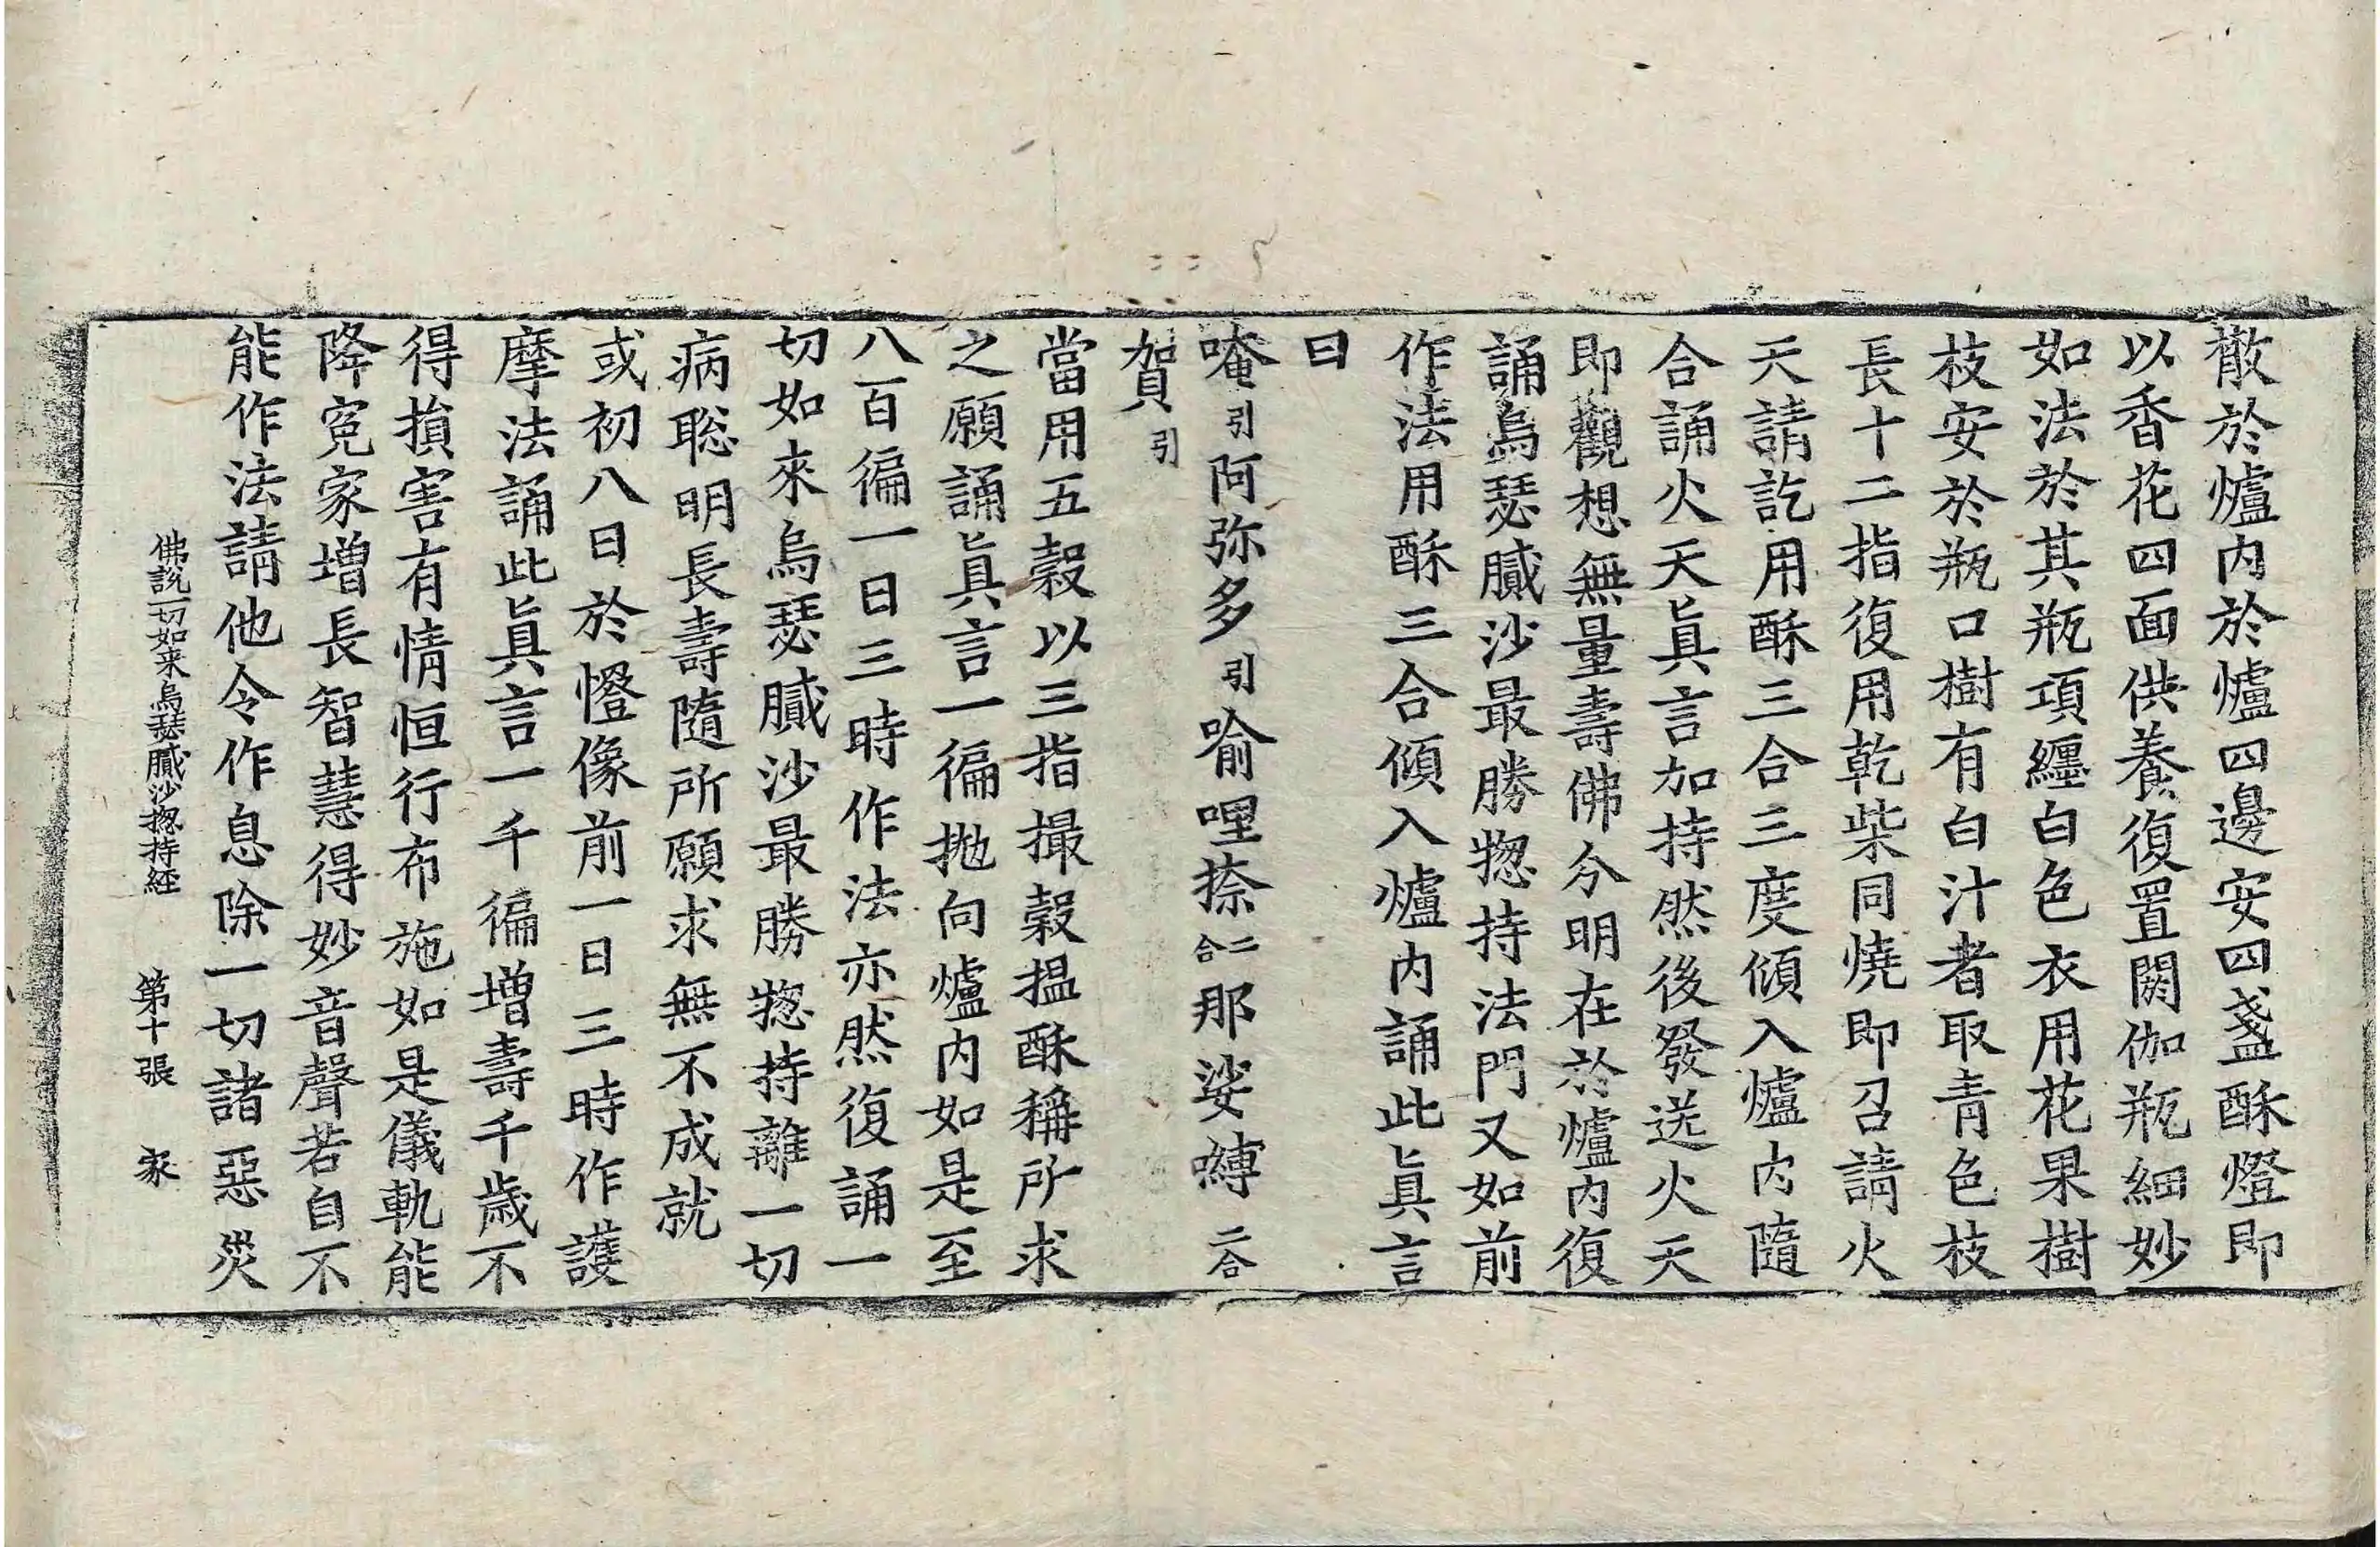 撒於爐内於爐四邊安四盞酥燈即
以香花四面供養復置閼伽瓶細妙
如法於其瓶項纏白色衣用花果樹
枝安於瓶口樹有白汁者取青色枝
長十二指復用乾柴同燒即召請火
天請訖用酥三合三度傾入爐内隨
合誦火天真言加持然後發送火天
即觀想無量壽佛分明在於爐内復
誦烏瑟膩沙最勝惣持法門又如前
作法用酥三合傾入爐内誦此真言
曰
唵引阿弥多引喻哩捺二合那娑嚩二合
賀引
當用五穀以三指撮穀揾酥稱所求
之願誦真言一徧拋向爐内如是至
八百徧一日三時作法亦然復誦一
切如來烏瑟膩沙最勝惣持離一切
病聡明長壽隨所願求無不成就
或初八日於㡧像前一日三時作護
摩法誦此真言一千徧增壽千歲不
得損害有情恒行布施如是儀軌能
降冤家增長智慧得妙音聲若自不
能作法請他令作息除一切諸惡災
佛說一切如来烏瑟膩沙惣持経 第十張 家